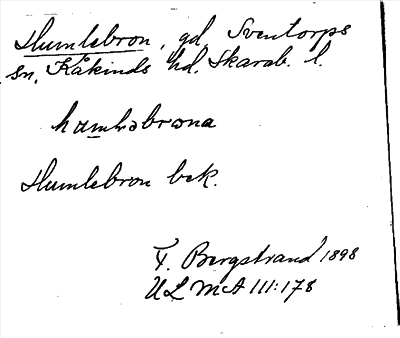 Humlebron, gd, Sventorps
sn, Kåkinds hd. Skarab. l.
Humlebron bek.
F. Bergstrand 1898
ULMA 111:178